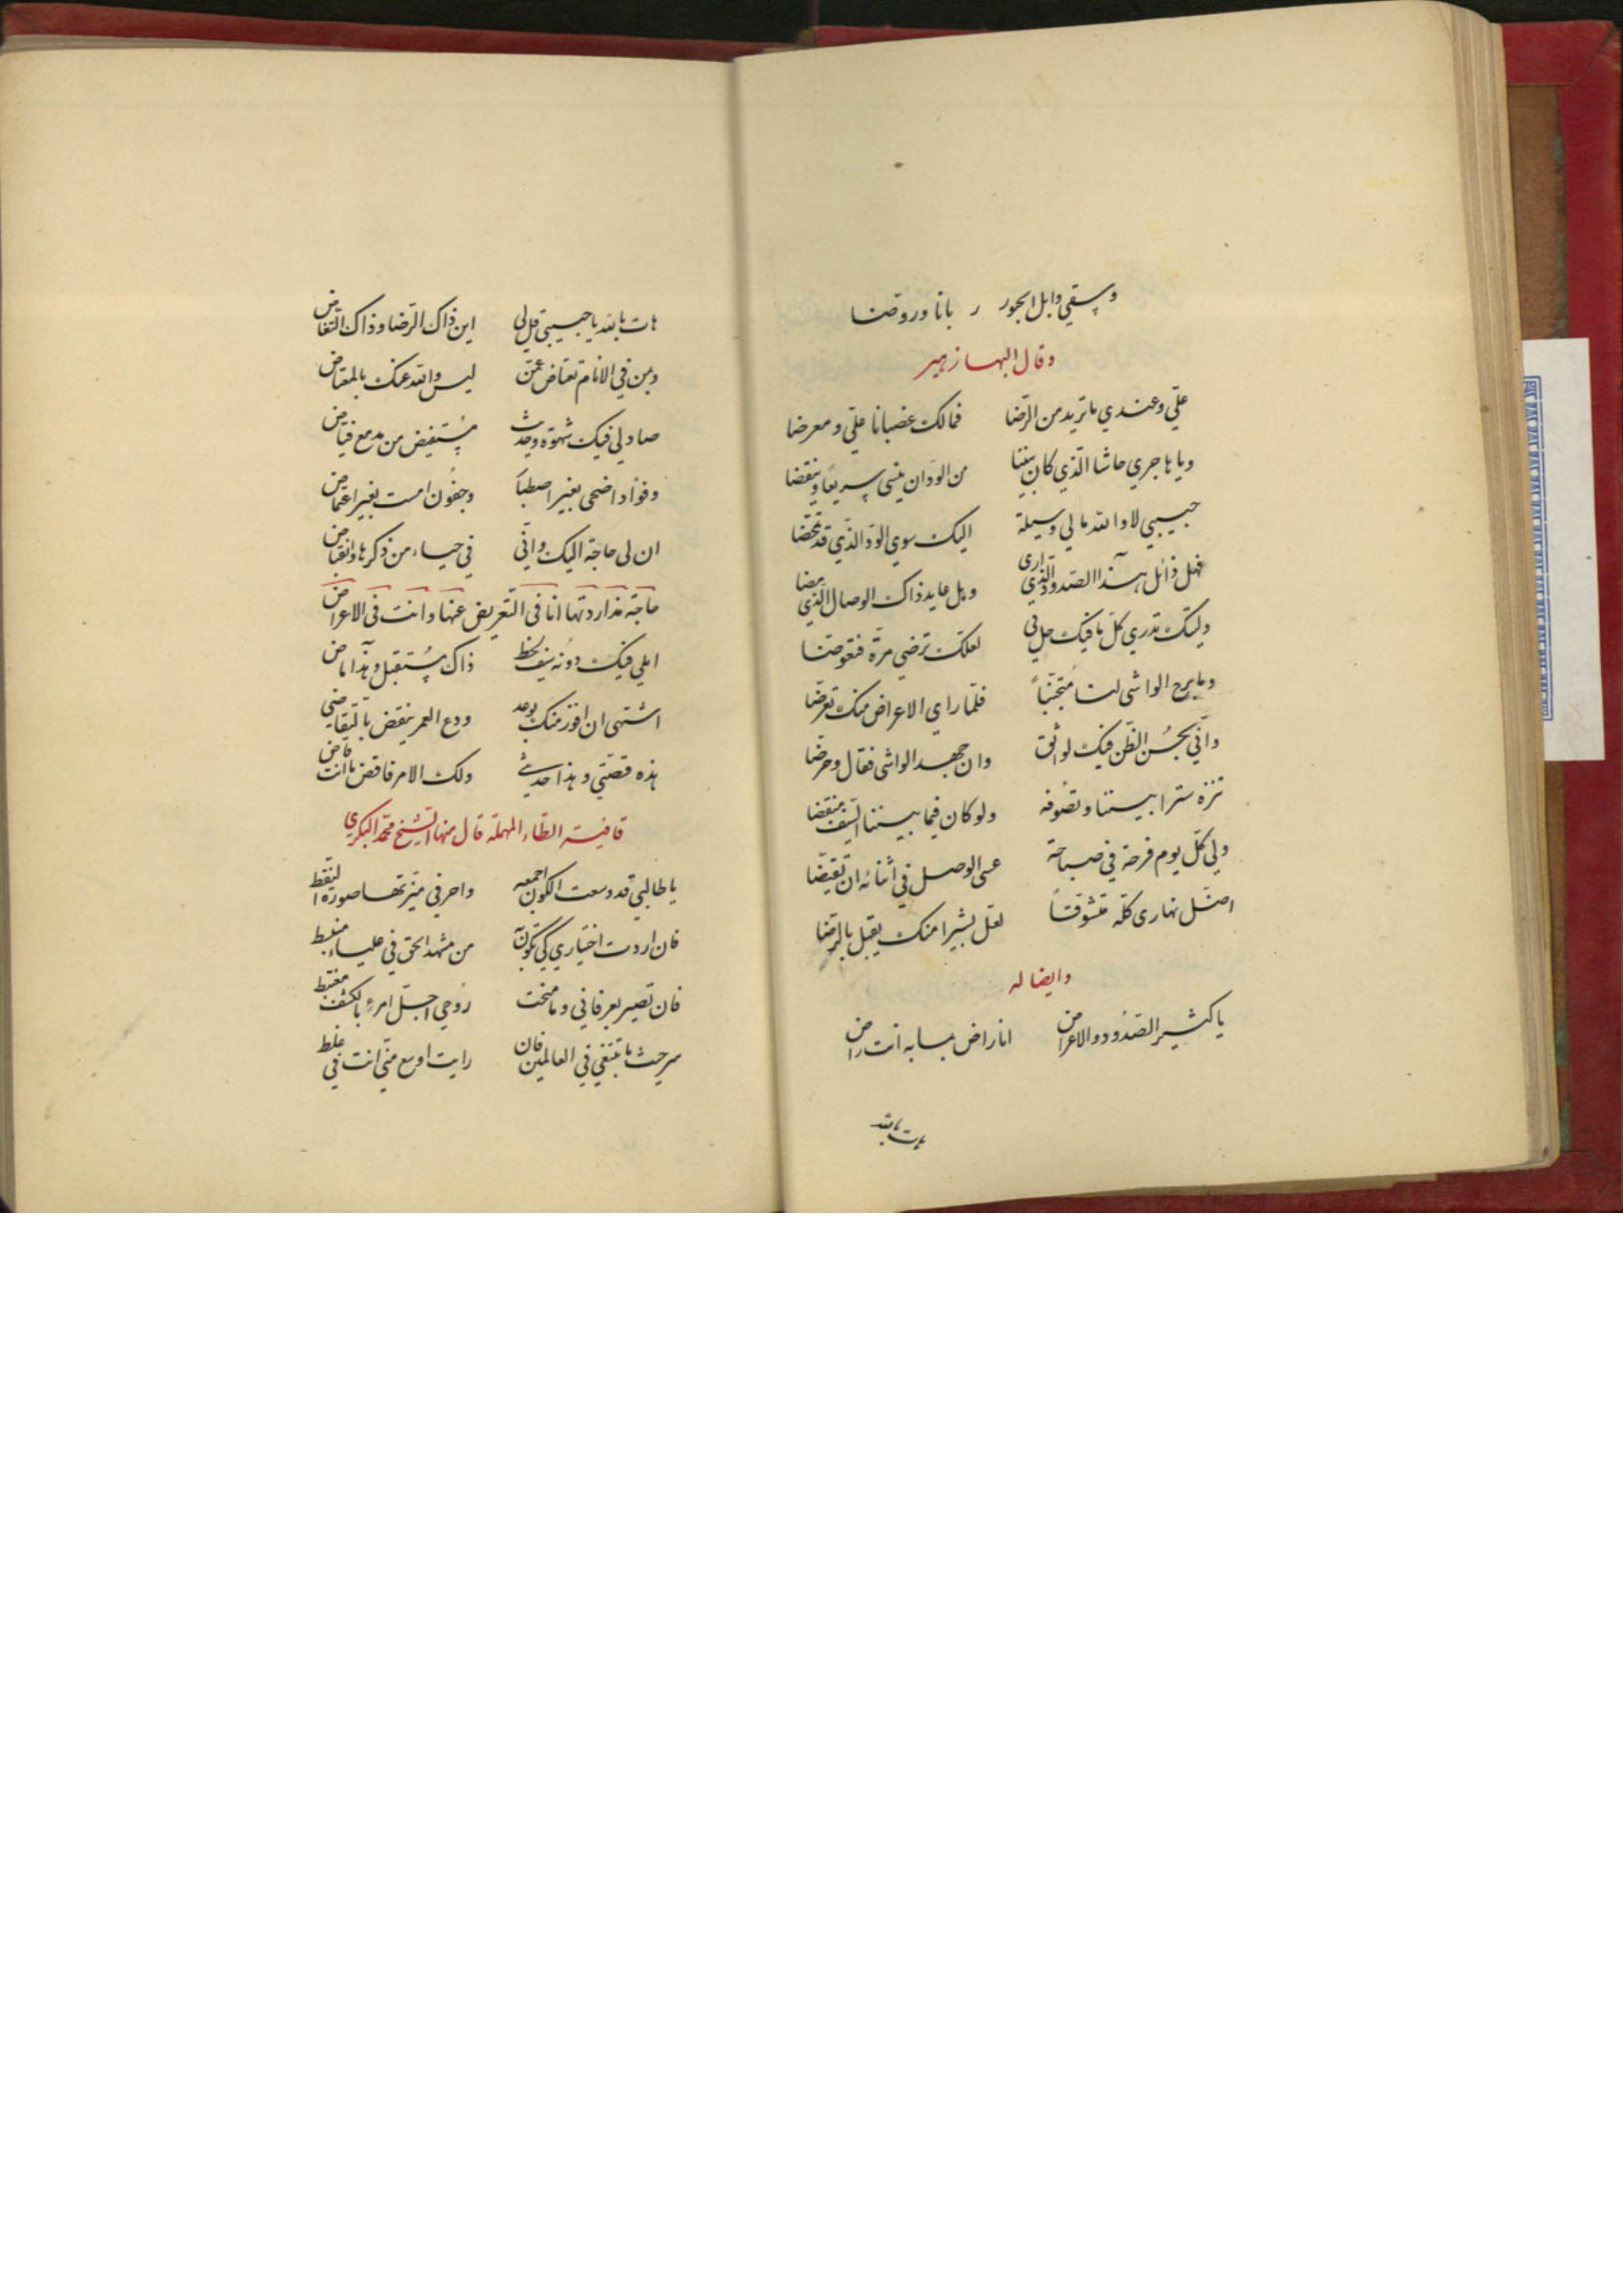 وسقي وابل الجور ر بانا وروضنا
وقال البها زهير
علي وعندي ما تريد من الرضا فمالك غضبانا علي ومعرضا
ويا هاجري حاشا الذي كان بيننا من الود ان ينسي سريعا وينقضا
حبيبي لا والله مالي وسيلة اليك سوي الود الذي قد تمحضا
فهل ذائل هذا الصدود الذي اري وهل عايد ذاك الوصال الذي مضا
وليتك تدري كل ما فيك حل بي لعلك ترضي مرة فتعوضنا
وما برح الواشي لنا متجنبا فلما راي الاعراض منك تعرضا
واني بحسن الظن فيك لواثق وان جهد الواشي فقال وحرضا
ننزه سترا بيننا ونصونه ولو كان فيما بيننا السيف منتضا
ولي كل يوم فرحة في صباحه عسى الوصل في اثنائه ان تقيضا
اضل نهاري كله متشوقا لعل بشيرا منك يقبل بالرضا
وايضا له
يا كثير الصدود والاعراض انا راض بما به انت راض
هات بالله
هات بالله يا حبيبي قل لي اين ذاك الرضا وذاك التغاض
وبمن في الانام تعتاض عمن ليس والله عنك بالمعتاض
صاد لي فيك شهوة وحديث مستفيض من مدمع فياض
وفؤاد اضحى بغير اصطبار وجفون امست بغير اغتماض
ان لي حاجة اليك واني في حياء من ذكرها وانقباض
حاجة مذ اردتها انا في التعريض عنها وانت في الاعراض
املي فيك دونه سيف لحظ ذاك مستقبل وهذا ماض
اشتهي ان افوز منك بوعد ودع العمر ينقض بالتقاضي
هذه قصتي وهذا حديثي ولك الامر فاقض ما انت قاض
قافية الطاء المهملة قال منها الشيخ محمد البكري
يا طالبي قد وسعت الكون اجمعه واحرفي ميزتها صورة النقط
فان اردت اختياري كي تكون من مشهد الحق في علياء منبسط
فان تصير بعرفاني وما منحت روحي اجل امرء بالكشف مغتبط
سر حيث ما تبتغي في العالمين فان رايت اوسع مني انت في غلط